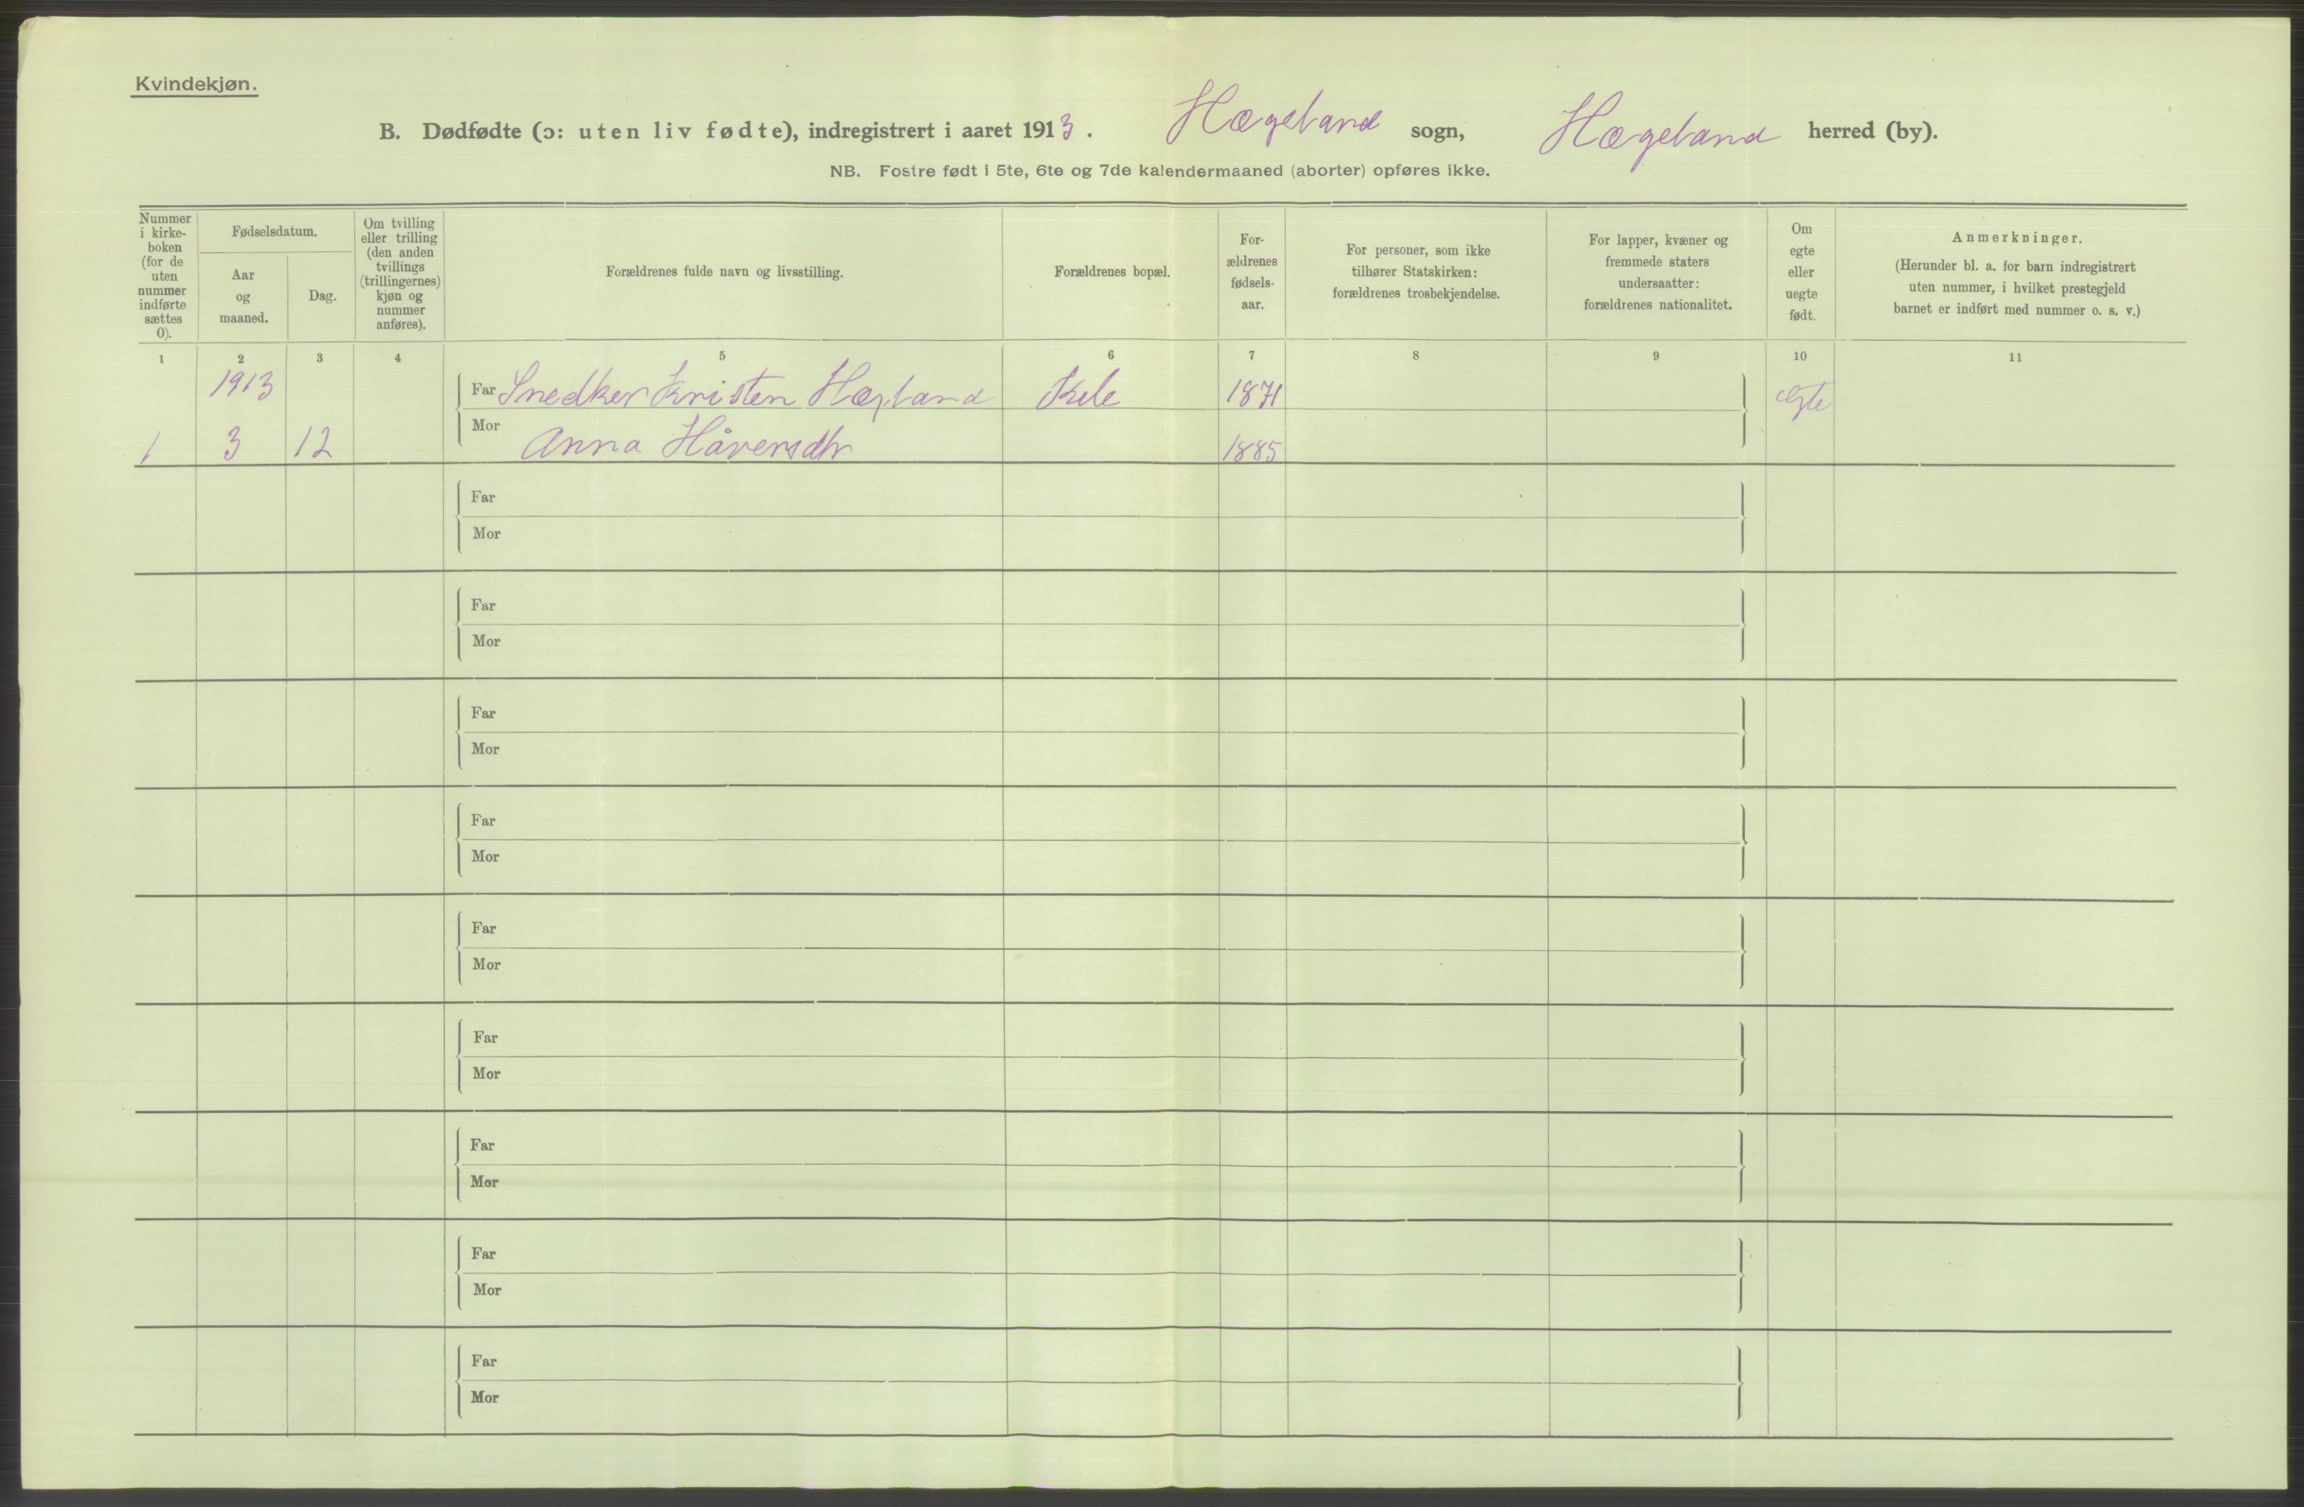 Kvindekjøn.
B. Dødfødte (ɔ: uten liv fødte), indregistrert i aaret 1913. Hægeland sogn, Hægeland herred (by).
NB. Fostre født i 5te, 6te og 7de kalendermaaned (aborter) opføres ikke.
Nummer
i kirke-
boken
(for de
uten
nummer
indførte
sættes
0).
Fødselsdatum.
Aar
og
maaned.
Dag.
Om tvilling
eller trilling
(den anden
tvillings
(trillingernes)
kjøn og
nummer
anføres).
Forældrenes fulde navn og livsstilling.
Forældrenes bopæl.
For-
ældrenes
fødsels-
aar.
For personer, som ikke
tilhører Statskirken:
forældrenes trosbekjendelse.
For lapper, kvæner og
fremmede staters
undersaatter:
forældrenes nationalitet.
Om
egte
eller
uegte
født.
Anmerkninger.
(Herunder bl. a. for barn indregistrert
uten nummer, i hvilket prestegjeld
barnet er indført med nummer o. s. v.)
1 2 3 4 5 6 7 8 9 10 11
1913 Far Snedker Kristen Hægland Kile 1871 Egte
1 3 12 Mor Anna Håversdtr 1885
Far
Mor
Far
Mor
Far
Mor
Far
Mor
Far
Mor
Far
Mor
Far
Mor
Far
Mor
Far
Mor